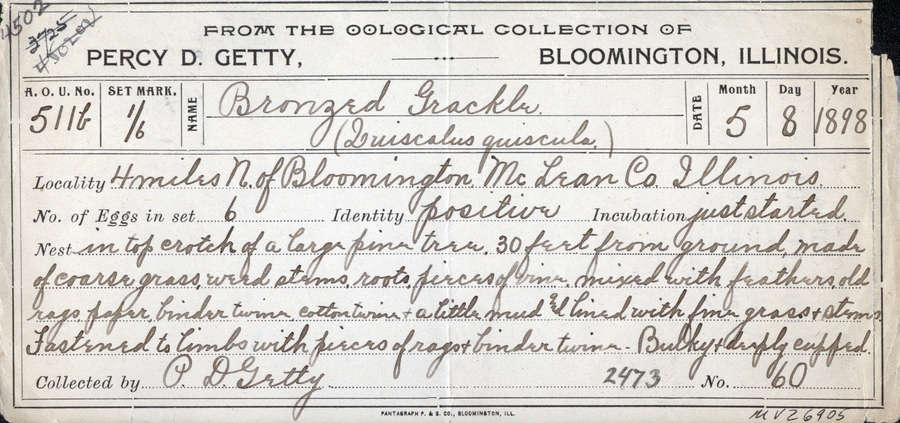 4502
3725
FROM THE OOLOGICAL COLLECTION OF
PERCY D. GETTY, BLOOMINGTON, ILLINOIS.
A. O. U. No. SET MARK. NAME DATE Month Day Year
511b 1/6 Bronzed Grackle. 5 8 1898
(Quiscalus quiscula.)
Locality 4 miles N. of Bloomington, Mc Lean Co. Illinois.
No. of Eggs in set 6 Identity positive Incubation just started.
Nest in top crotch of a large pine tree. 30 feet from ground, made
of coarse grass, weed stems, roots, pieces of vine, mixed with feathers, old
rags, paper, binder twine, cotton twine + a little mud and lined with fine grass + stems
Fastened to limbs with pieces of rags + binder twine - Bulky + deeply cupped.
Collected by P. D. Getty 2473 No. 60
PANTAGRAPH P. & S. CO., BLOOMINGTON, ILL.
MVZ 6905